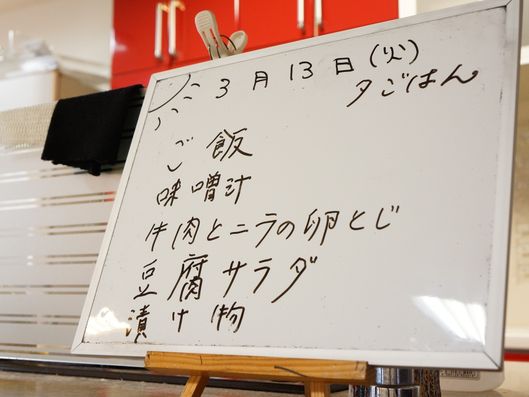 3月13日(火)
夕ごはん
ご飯
味噌汁
牛肉とニラの卵とじ
豆腐サラダ
漬け物